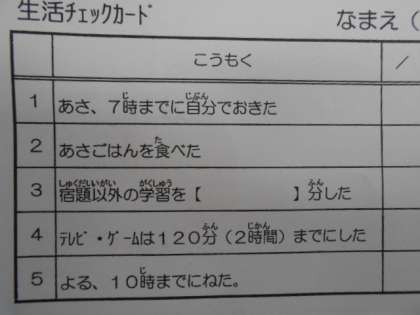 生活ﾁｪｯｸｶｰﾄﾞ
なまえ（
こうもく
／
1 あさ、７時までに自分でおきた
2 あさごはんを食べた
3 宿題以外の学習を【　　　　　】分した
4 ﾃﾚﾋﾞ・ｹﾞｰﾑは１２０分（２時間）までにした
5 よる、１０時までにねた。